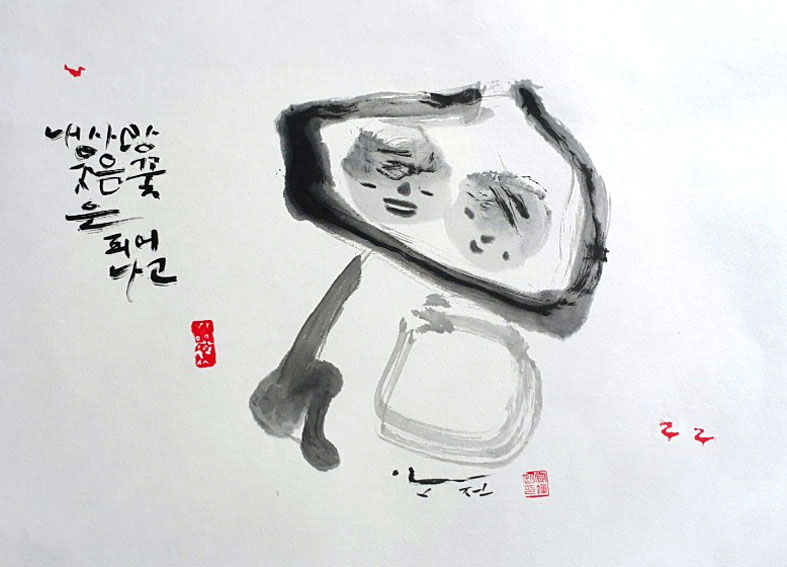 내사랑
웃음꽃
은
피어
나고